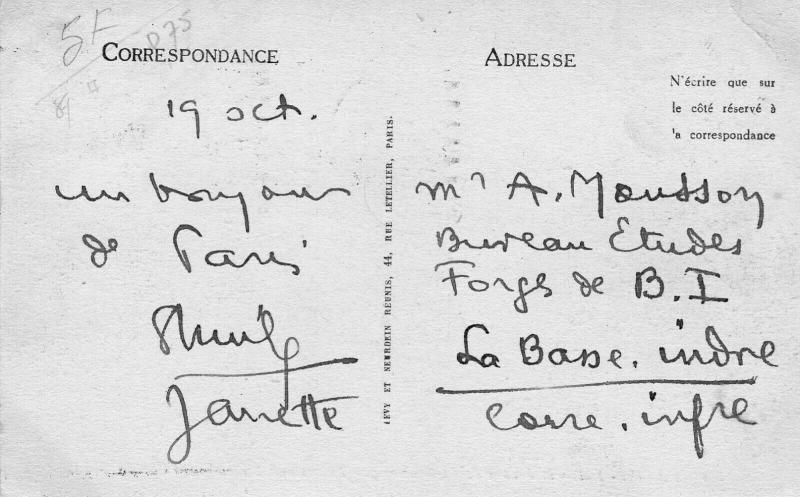 5F
D75
CORRESPONDANCE
19 oct.
un bonjour
de Paris
Janette
LEVY ET NEURDEIN RÉUNIS, 44, RUE LETELLIER, PARIS.
ADRESSE
N'écrire que sur
le côté réservé à
'a correspondance
Mr A. Mousson
Bureau Etudes
Forges de B. I
La Basse. indre
Loire. infre